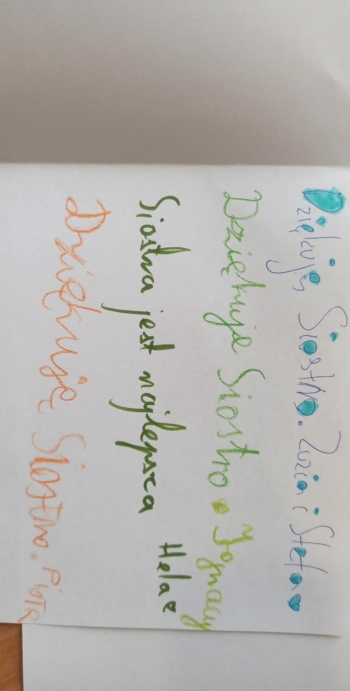 Dziękuję, Siostro. Zuzia i Stefan
Dziękuję Siostro. Ignacy
Siostra jest najlepsza Hela
Dziękuję Siostro. Piotr